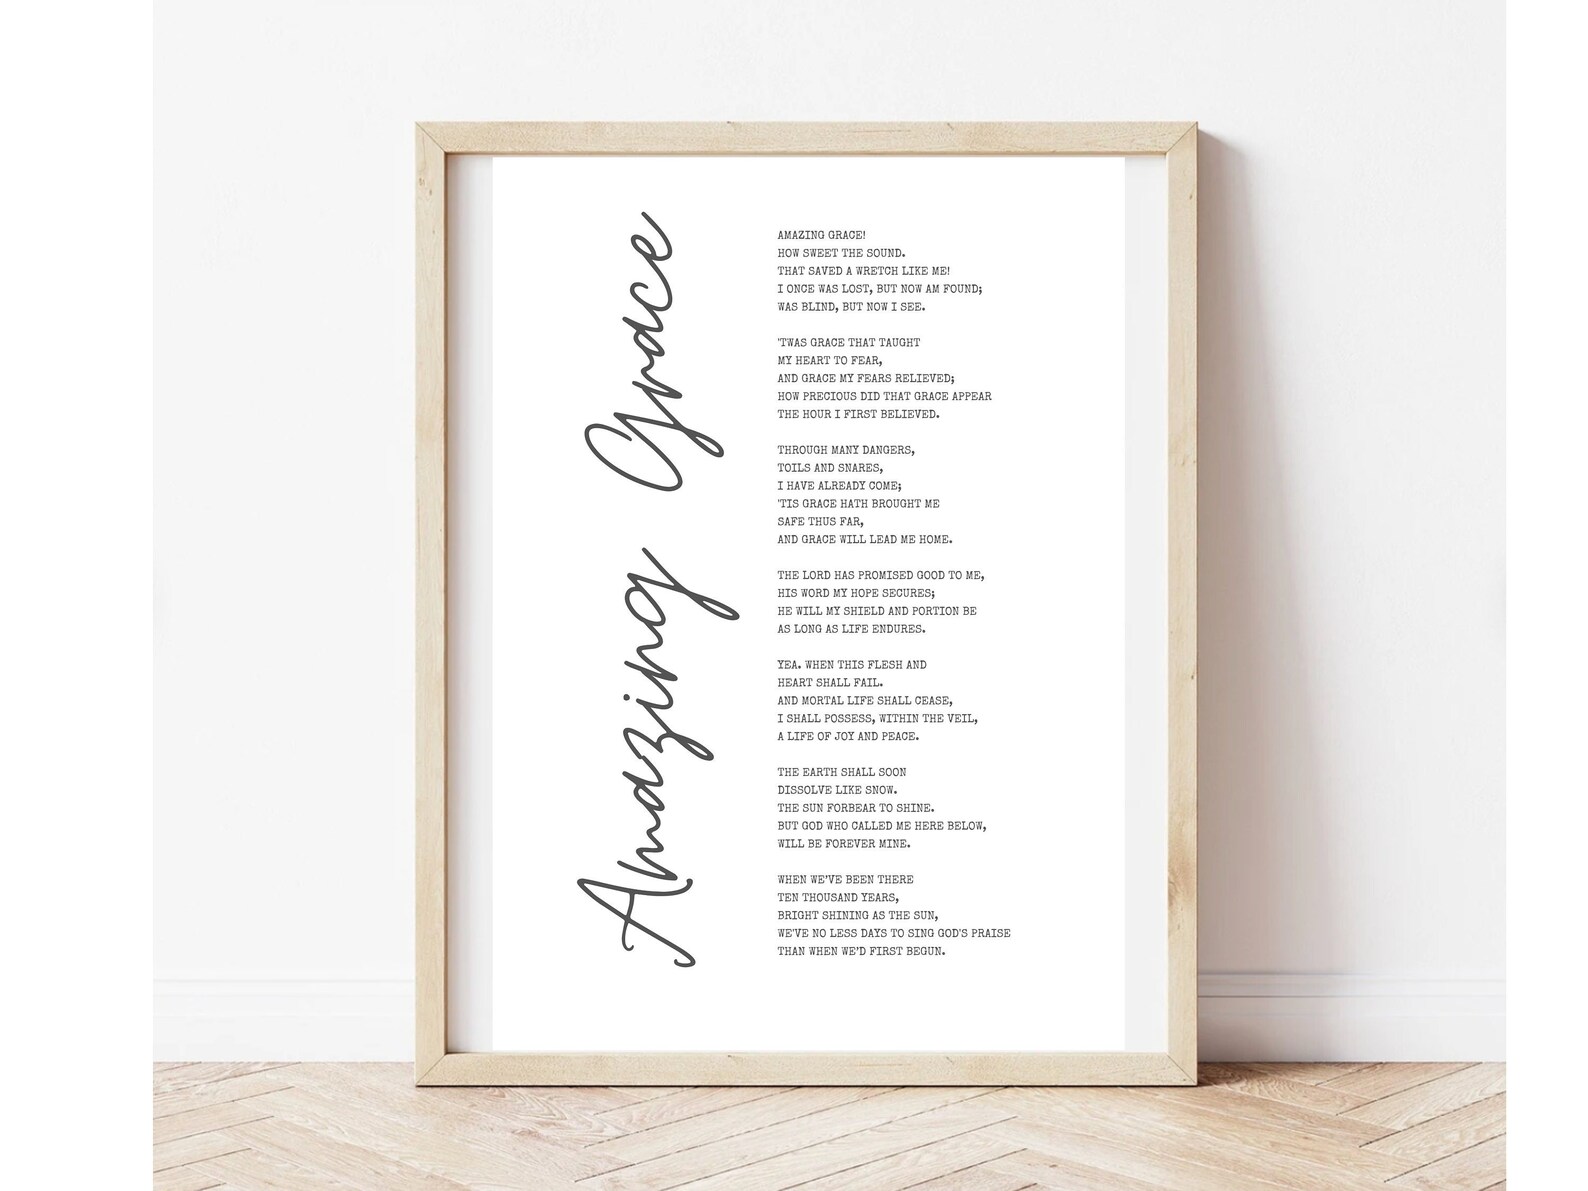 Amazing Grace
AMAZING GRACE!
HOW SWEET THE SOUND.
THAT SAVED A WRETCH LIKE ME!
I ONCE WAS LOST, BUT NOW AM FOUND;
WAS BLIND, BUT NOW I SEE.
'TWAS GRACE THAT TAUGHT
MY HEART TO FEAR,
AND GRACE MY FEARS RELIEVED;
HOW PRECIOUS DID THAT GRACE APPEAR
THE HOUR I FIRST BELIEVED.
THROUGH MANY DANGERS,
TOILS AND SNARES,
I HAVE ALREADY COME;
'TIS GRACE HATH BROUGHT ME
SAFE THUS FAR,
AND GRACE WILL LEAD ME HOME.
THE LORD HAS PROMISED GOOD TO ME,
HIS WORD MY HOPE SECURES;
HE WILL MY SHIELD AND PORTION BE
AS LONG AS LIFE ENDURES.
YEA. WHEN THIS FLESH AND
HEART SHALL FAIL.
AND MORTAL LIFE SHALL CEASE,
I SHALL POSSESS, WITHIN THE VEIL,
A LIFE OF JOY AND PEACE.
THE EARTH SHALL SOON
DISSOLVE LIKE SNOW.
THE SUN FORBEAR TO SHINE.
BUT GOD WHO CALLED ME HERE BELOW,
WILL BE FOREVER MINE.
WHEN WE'VE BEEN THERE
TEN THOUSAND YEARS,
BRIGHT SHINING AS THE SUN,
WE'VE NO LESS DAYS TO SING GOD'S PRAISE
THAN WHEN WE'D FIRST BEGUN.